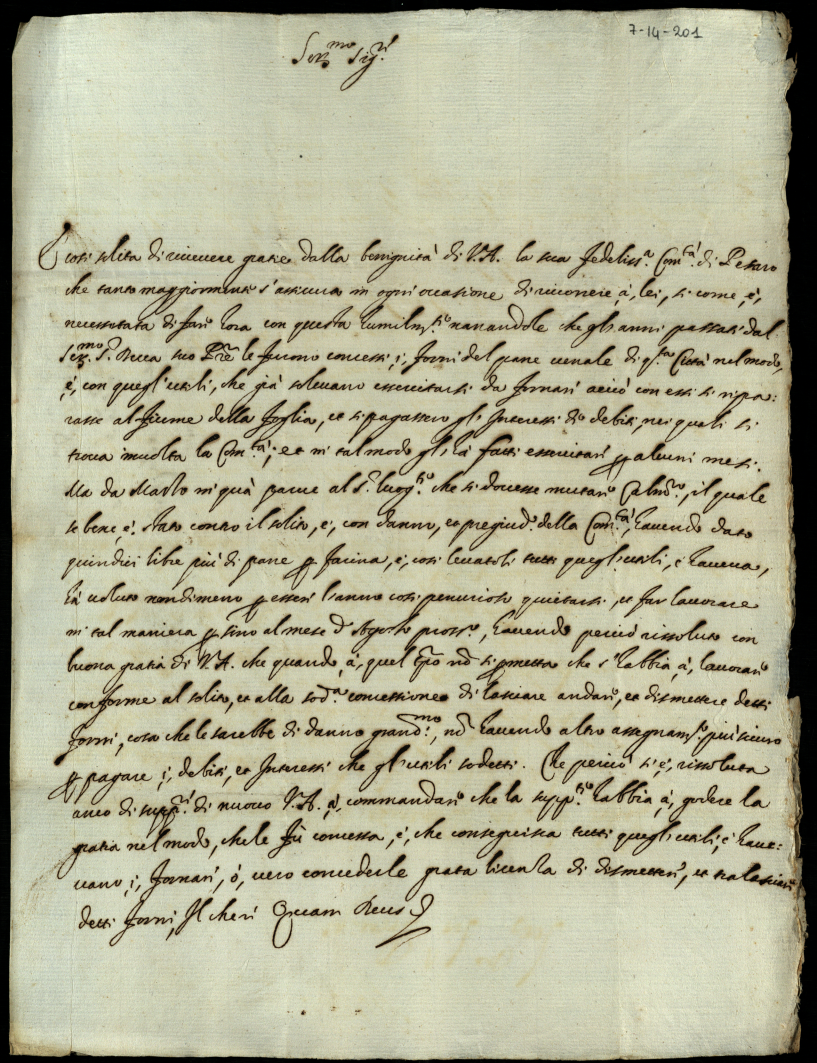 7-14-201
Ser.mo Sig.r
È così solita di ricevere gratie dalla benignità di V.A. la sua fedeliss.a Com.tà di Pesaro
che tanto maggiormente s'assicura in ogni occasione di ricorrere, à, lei, si come, è,
necessitata di fare hora con questa humilm.te narrandole che gl'anni passati dal
Ser.mo S.r Duca suo P͠re le furono concessi, i, forni del pane venale di q.sta Città nel modo,
è, con quegl'utili, che già solevano essercitarsi da fornari acciò con essi si ripa:
rasse al fiume della foglia, et si pagassero gl'Interessi di debiti, nei quali si
trova involta la Com.tà; et in tal modo gl'hà fatti essercitari p alcuni mesi.
Ma da Marzo in quà parve al S.r luog.te che si dovesse mutare Calm.ro, il quale
se bene, è, stato contro il solito, e, con danno, et pregiud.o della Com.tà, havendo dato
quindici libre più di pane p farina, e, così levatoli tutti quegl'utili, c'haveva,
hà voluto nondimeno p esseri l'anno così penurioso quietarsi, et far lavorare
in tal maniera p sino al mese d'Agosto pross.o, havendo perciò rissoluto con
buona gratia di V.A. che quando, à, quel t͠po nõ si pmetta che s'habbia, à, lavorare
conforme al solito, et alla sod.a concessione di lasciare andare, et dismettere detti
forni, cosa che le sarebbe di danno grand.mo, nõ havendo altro assegnam.to più sicuro
p pagare, i, debiti, et Interessi che gl'utili sodetti. Che perciò si è, rissoluta
anco di supp.ri di nuovo V.A. à, commandare che la supp.te habbia, à, godere la
gratia nel modo, che le fù concessa, è, che conseguisca tutti quegl'utili, c'have:
vano, i, fornari, ò, vero concederle grata licenza di dismetteri, et tralasciari
detti forni, Il che ri Quam Deus